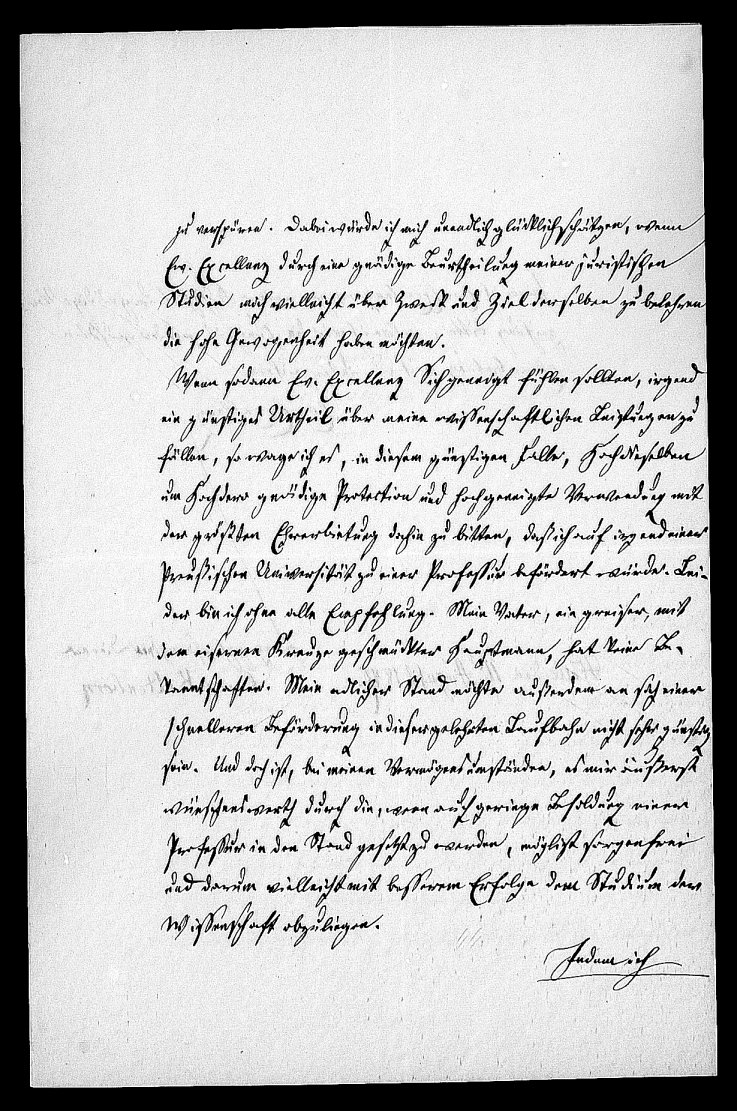 zu verspüren. Dabei würde ich mich unendlich glücklich schätzen, wenn
Ew. Excellenz durch eine gnädige Beurtheilung meiner juristischen
Studien mich vielleicht über Zweck und Ziel derselben zu belehren
die hohe Gewogenheit haben möchten.
Wenn sodann Ew. Excellenz Sich geneigt fühlen sollten, irgend
ein günstiges Urtheil über meine wissenschaftlichen Leistungen zu
fällen, so wage ich es, in diesem günstigen Falle, Hochdieselben
um Hochdero gnädige Protection und hochgeneigte Verwendung mit
der größten Ehrerbietung dahin zu bitten, daß ich auf irgend einer
Preußischen Universität zu einer Professur befördert würde. Lei-
der bin ich ohne alle Empfehlung. Mein Vater, ein greiser, mit
dem eisernen Kreuze geschmückter Hauptmann, hat keine Be-
kanntschaften. Mein adlicher Stand möchte außerdem an sich einer
schnelleren Beförderung in dieser gelehrten Laufbahn nicht sehr günstig
sein. Und doch ist, bei meinen Vermögensumständen, es mir äußerst
wünschenswerth durch die, wenn auch geringe Besoldung einer
Professur in den Stand gesetzt zu werden, möglichst sorgenfrei
und darum vielleicht mit besserem Erfolge dem Studium der
Wissenschaft obzuliegen.
Indem ich